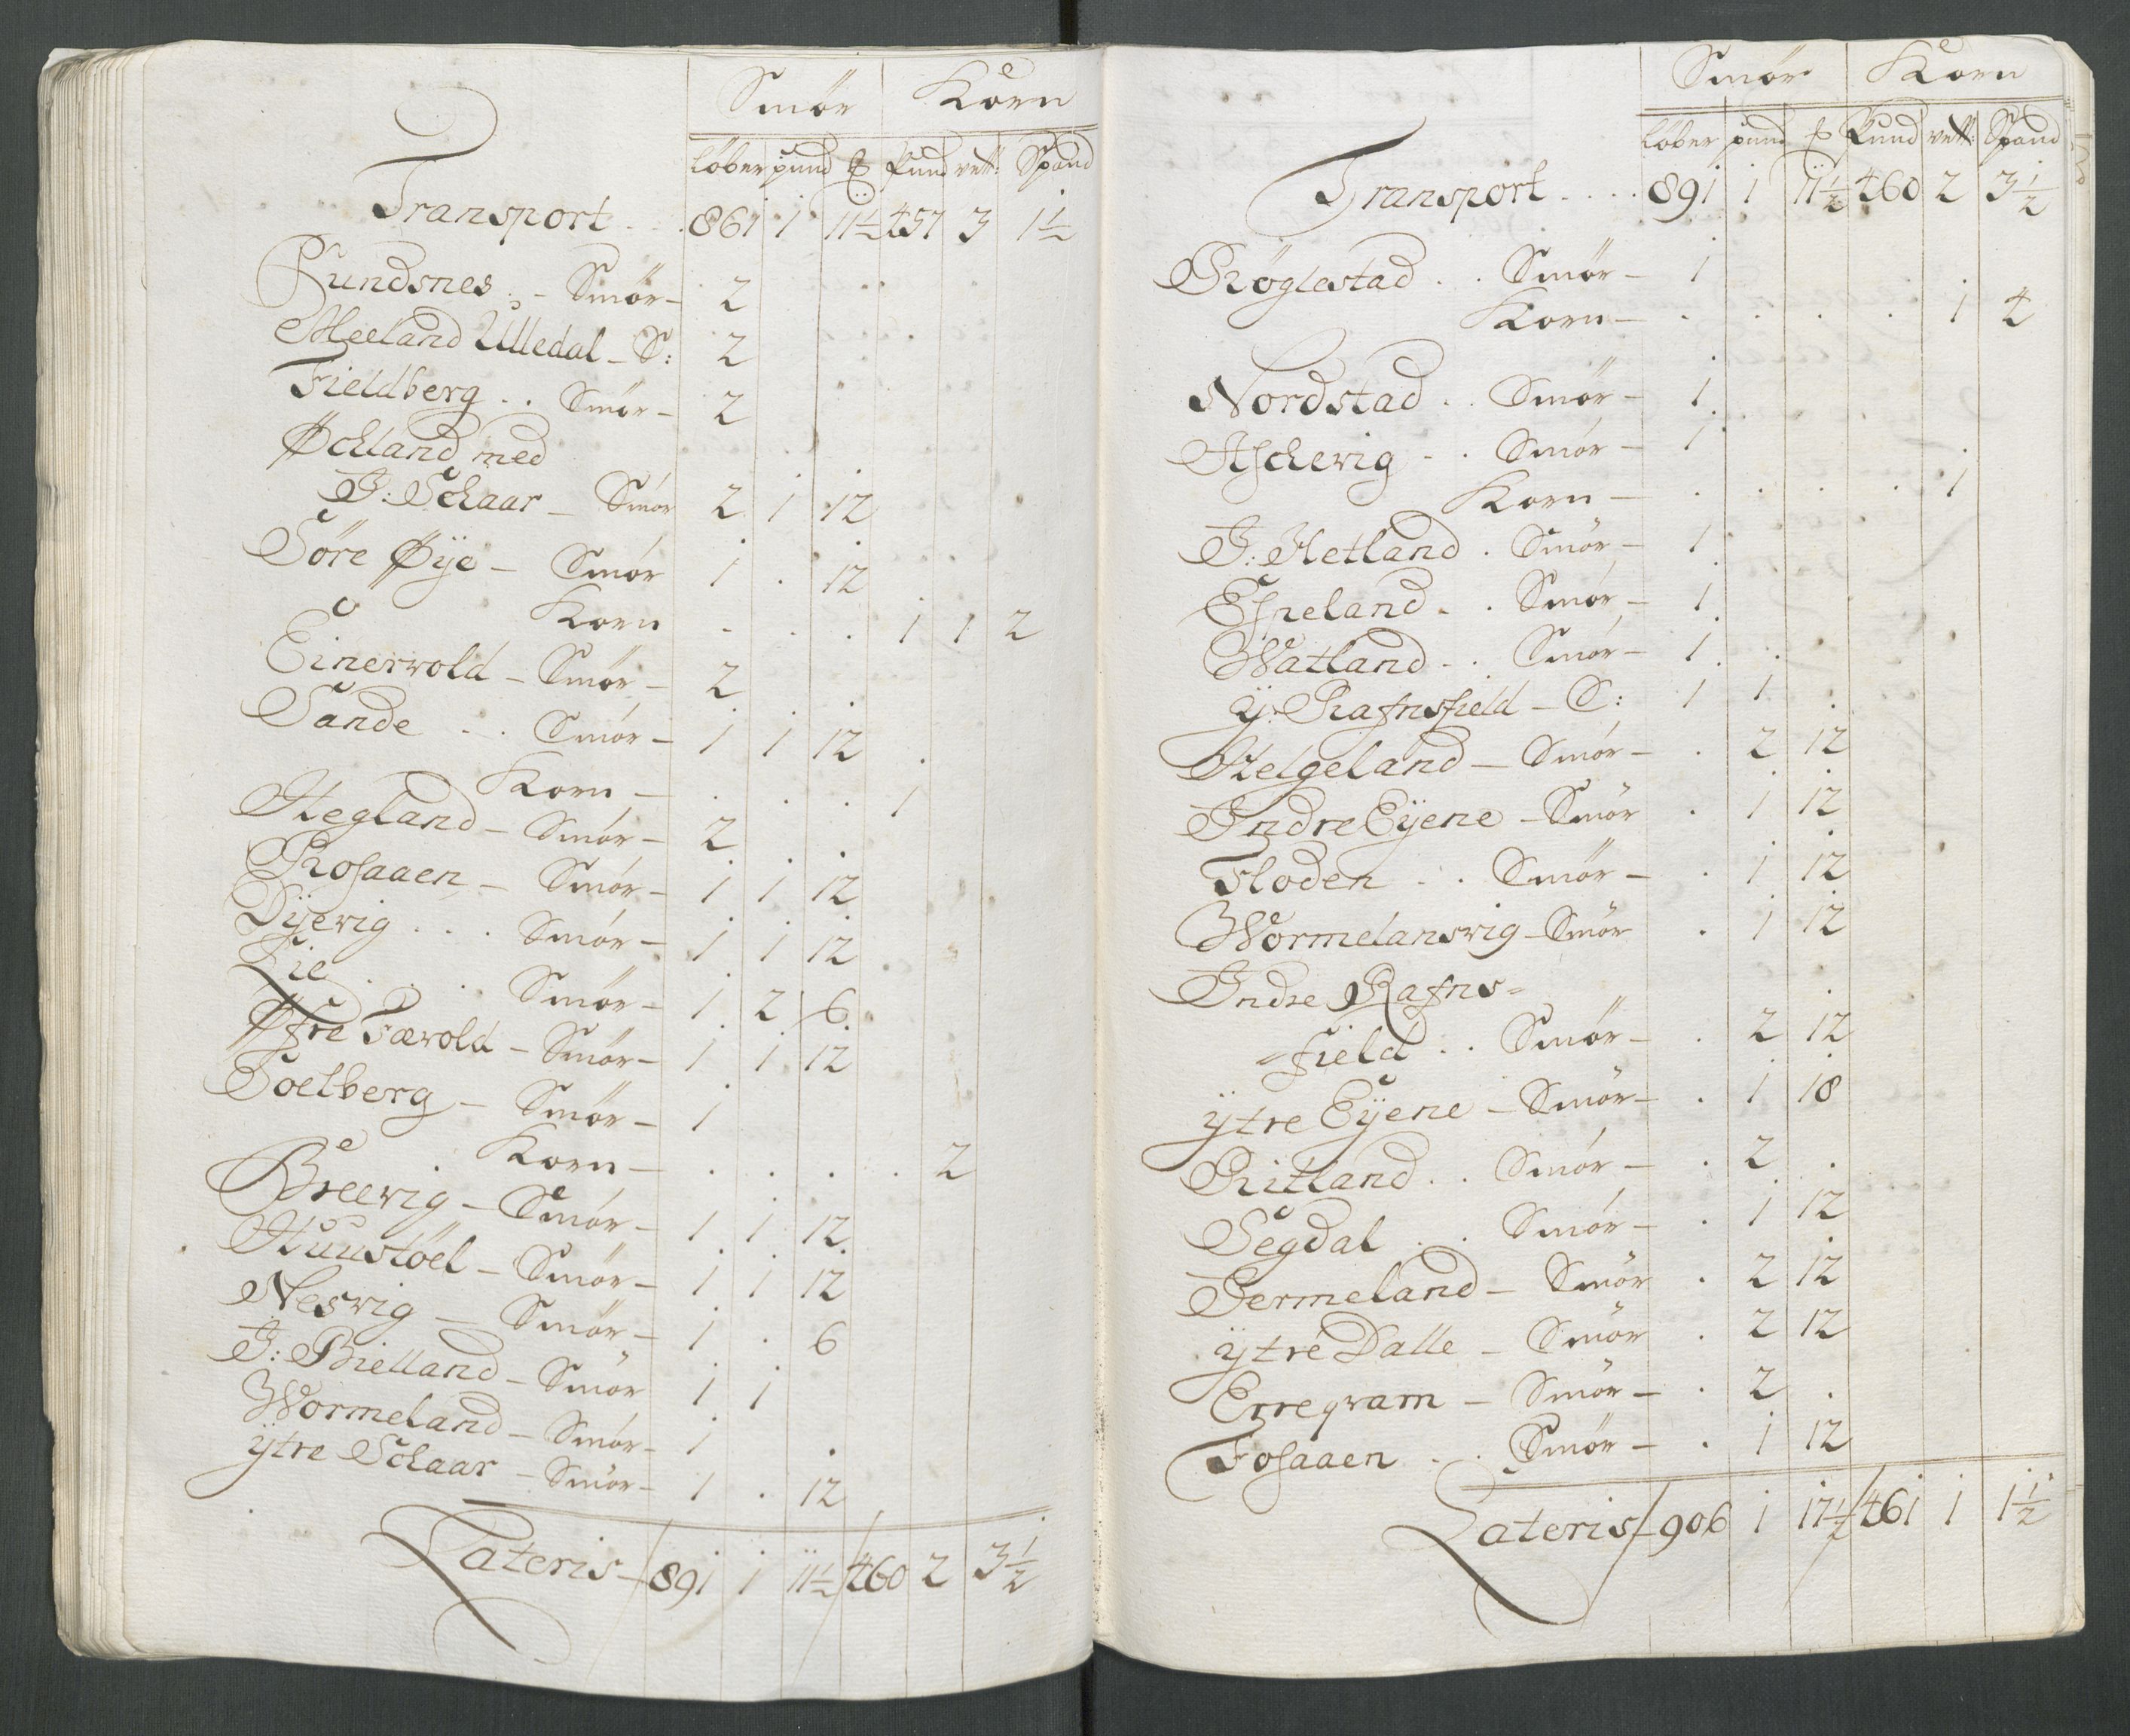 Smör Korn
löber pund ℔ Pund vett: Spand
Transport . . . 861 1 11½ 457 3 1½
Rundsnes . - Smör - 2
Meeland Ulledal - S: 2
Fieldberg . . Smör - 2
Øchland med
J: Schaar - Smör 2 1 12
Söre Øye - Smör 1 . 12
Korn - . . 1 1 2
Einerwold - Smör - 2
Sande . . Smör - 1 1 12
Korn - . . . 1
Hegland - Smör - 2
Rosaaen - Smör - 1 1 12
Dÿevig . . . Smör - 1 1 12
Lie . . . Smör - 1 2 6
Øfre Færvold - Smör - 1 1 12
Soelberg - Smör - 1
Korn - . . . . 2
Breevig - Smör - 1 1 12
Huustöel - Smör - 1 1 12
Nesvig - Smör - 1 . 6
J: Bielland - Smör 1 1
Wormeland - Smör - 1
ÿtre Schaar - Smör - 1 . 12
Lateris - 891 1 11½ 460 2 3½
Smör Korn
löber pund ℔ Pund vett: Spand
Transport . . . . 891 1 11½ 460 2 3½
Röglestad . . Smör - 1
Korn - . . . . 1 4
Nordstad . . Smör - 1
Aschevig - . Smör - 1
Korn - . . . . 1
J: Hetland . Smör - 1
Espeland - . Smör - 1
Watland - . Smör - 1
ÿ: Rafnsfield - S: 1 1
Helgeland - Smör - . 2 12
Indre Eÿene - Smör . 1 12
Floden . . Smör - . 1 12
Wormelansvig - Smör . 1 12
Indre Rafns=
=field . . Smör - . 2 12
ÿtre Eÿene - Smör - . 1 18
Ritland . . Smör - . 2 .
Segdal . . Smör - . 1 12
Jermeland - Smör . 2 12
ÿtre Dalle - Smör . 2 12
Erreqvam - Smör - . 2 .
Fosaaen . . Smör - . 1 12
Lateris - 906 1 17½ 461 1 1½